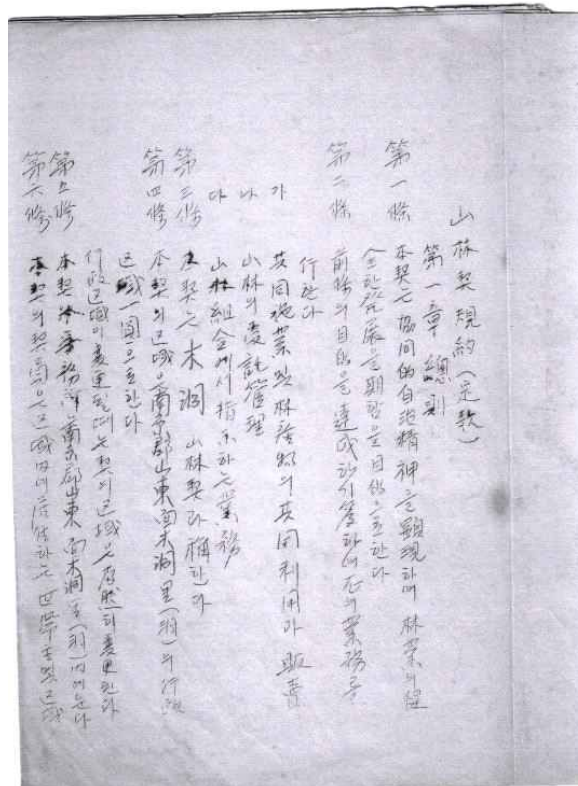 山林契規約(定款)
第一章 總則
第一條 本契는 協同的 自治精神을 顯現하며 林業의 健
全한 發展을 期함을 目的으로 한다
第二條 前條의 目的을 達成하기 爲하여 左의 業務를
行한다
가 共同施業 및 林産物의 共同利用과 販賣
나 山林의 委託管理
다 山林組合에서 指示하는 業務
第三條 本契는 木洞 山林契라 稱한다
第四條 本契의 區域은 南原郡 山東面 木洞里(洞)의 行政
區域 一圓으로 한다
行政區域이 變更될 때는 契의 區域은 당然히 變更한다
第五條 本契 事務所 南原郡 山東面 木洞里(洞)內에 둔다
第六條 本契의 契員은 區域內에 居住하는 世帶主 및 區域